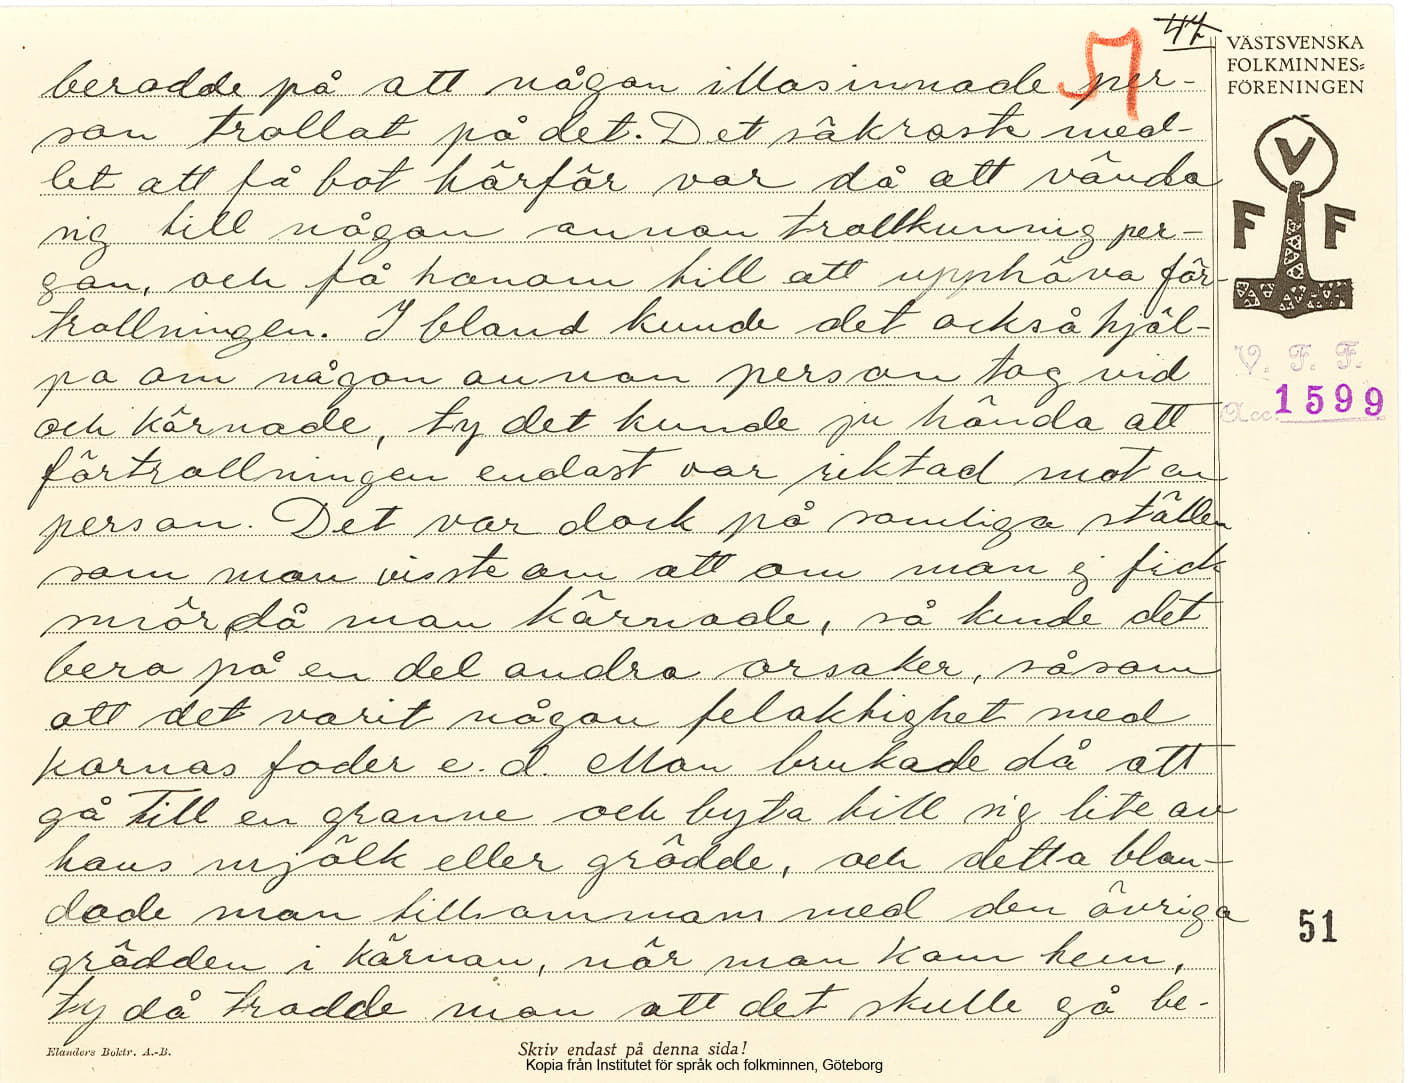 47
VÄSTSVENSKA
FOLKMINNES=
FÖRENINGEN
V
F F
V. F. F.
Acc. 1599
berodde på att någon illasinnade per-
son trollat på det. Det säkraste med-
let att få bot härför var då att vända
sig till någon annan trollkunnig per-
son, och få honom till att upphäva för-
trollningen. I bland kunde det också hjäl-
pa om någon annan person tog vid
och kärnade, ty det kunde ju hända att
förtrollningen endast var riktad mot en
person. Det var dock på somliga ställen
som man visste om att om man ej fick
smör då man kärnade, så kunde det
bero på en del andra orsaker, såsom
att det varit någon felaktighet med
kornas foder e. d. Man brukade då att
gå till en granne och byta till sig lite av
hans mjölk eller grädde, och detta blan-
dade man tillsammans med den övriga
grädden i kärnan, när man kom hem,
ty då trodde man att det skulle gå be-
51
Elanders Boktr. A.-B.
Skriv endast på denna sida!
Kopia från Institutet för språk och folkminnen, Göteborg